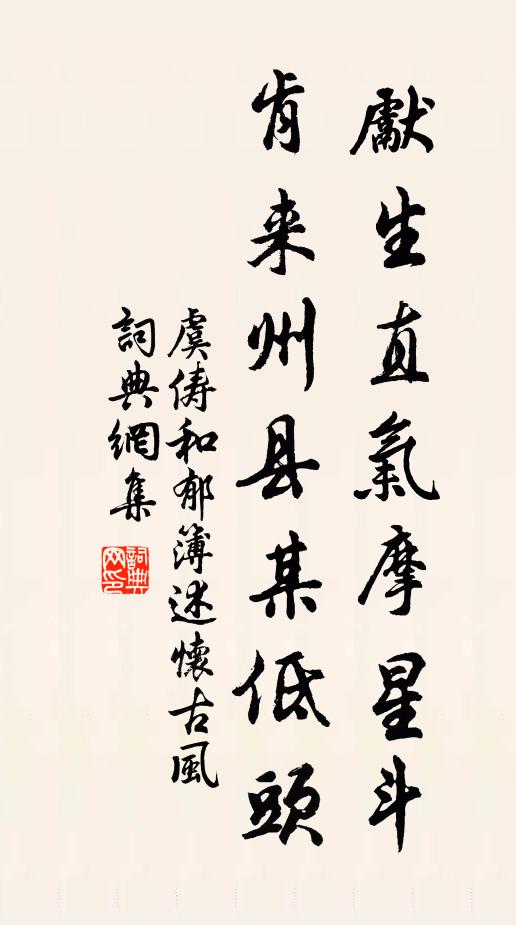 獻生直氣摩星斗
肯来州县某低頭
虞儔和郁簿述懷古風
詞典網集
詞典网印